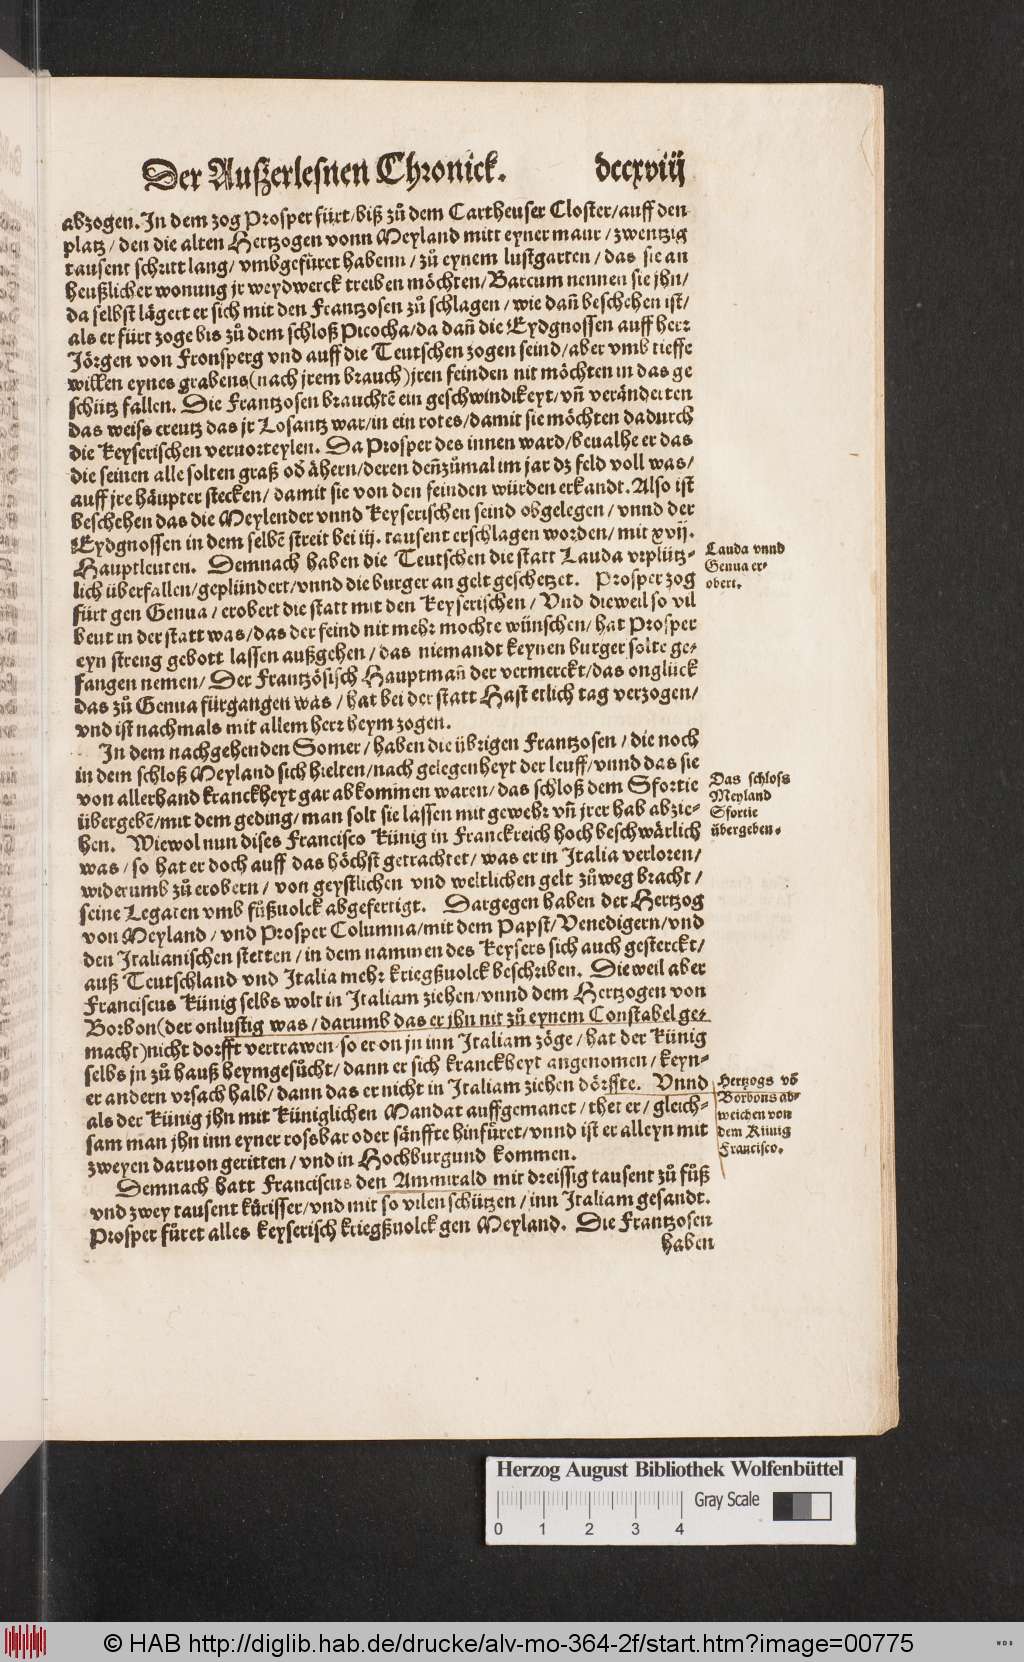 Der Außerlesnen Chronick. dccxviij
abzogen. In dem zog Prosper fürt/biß zů dem Cartheuser Closter/auff den
platz/ den die alten Hertzogen vonn Meyland mitt eyner maur / zwentzig
tausent schritt lang/ vmbgefüret habenn / zů eynem lustgarten / das sie an
heußlicher wonung jr weydwerck treiben möchten/Barcum nennen sie jhn/
da selbst lägert er sich mit den Frantzosen zů schlagen / wie dañ beschehen ist/
als er fürt zoge bis zů dem schloß Picocha/da dañ die Eydgnossen auff herr
Jörgen von Fronsperg vnd auff die Teutschen zogen seind/aber vmb tieffe
willen eynes grabens(nach jrem brauch)jren feinden nit möchten in das ge
schütz fallen. Die Frantzosen brauchtẽ ein geschwindikeyt/ vñ veränderten
das weiss creutz das jr Losantz war/in ein rotes/damit sie möchten dadurch
die Keyserischen veruorteylen. Da Prosper des innen ward/beualhe er das
die seinen alle solten graß od ähern/deren deñzůmal im jar dz feld voll was/
auff jre häupter stecken/ damit sie von den feinden würden erkandt. Also ist
beschehen das die Meylender vnnd Keyserischen seind obgelegen/ vnnd der
Eydgnossen in dem selbẽ streit bei iij. tausent erschlagen worden/ mit xvij.
Hauptleuten. Demnach haben die Teutschen die statt Lauda vrplütz-
lich überfallen/geplündert/vnnd die burger an gelt geschetzet. Prosper zog
fürt gen Genua / erobert die statt mit den Keyserischen / Vnd dieweil so vil
beut in der statt was/das der feind nit mehr mochte wünschen/ hat Prosper
eyn streng gebott lassen außgehen / das niemandt keynen burger solte ge-
fangen nemen/ Der Frantzösisch Hauptmañ der vermerckt/das onglück
das zů Genua fürgangen was / hat bei der statt Hast etlich tag verzogen/
vnd ist nachmals mit allem herr heym zogen.
Lauda vnnd
Genua er-
obert.
In dem nachgehenden Somer/ haben die übrigen Frantzosen / die noch
in dem schloß Meyland sich hielten/nach gelegenheyt der leuff/vnnd das sie
von allerhand kranckheyt gar abkommen waren/das schloß dem Sfortie
übergebẽ/mit dem geding/man solt sie lassen mit gewehr vñ jrer hab abzie-
hen. Wiewol nun dises Francisco Künig in Franckreich hoch beschwärlich
was / so hat er doch auff das höchst getrachtet/ was er in Italia verloren/
widerumb zů erobern/ von geystlichen vnd weltlichen gelt zůweg bracht/
seine Legaten vmb fůßuolck abgefertigt. Dargegen haben der Hertzog
von Meyland/ vnd Prosper Columna/mit dem Papst/Venedigern/vnd
den Italianischen stetten / in dem nammen des Keysers sich auch gesterckt/
auß Teutschland vnd Italia mehr kriegßuolck beschriben. Dieweil aber
Franciscus Künig selbs wolt in Italiam ziehen/vnnd dem Hertzogen von
Borbon(der onlustig was/darumb das er jhn nit zů eynem Constabel ge-
macht)nicht dorfft vertrawen so er on jn inn Italiam zöge/ hat der Künig
selbs jn zů hauß heymgesůcht/ dann er sich kranckheyt angenomen/ keyn-
er andern vrsach halb/dann das er nicht in Italiam ziehen dörffte. Vnnd
als der Künig jhn mit Küniglichen Mandat auffgemanet/ thet er/ gleich-
sam man jhn inn eyner rossbar oder sänffte hinfůret/vnnd ist er alleyn mit
zweyen daruon geritten/ vnd in Hochburgund kommen.
Das schloss
Meyland
Sfortie
übergeben.
Hertzogs võ
Borbons ab-
weichen von
dem Künig
Francisco.
Demnach hatt Franciscus den Ammirald mit dreissig tausent zů fůß
vnd zwey tausent kürisser/vnd mit so vilen schützen/ inn Italiam gesandt.
Prosper fůret alles keyserisch kriegßuolck gen Meyland. Die Frantzosen
haben
Herzog August Bibliothek Wolfenbüttel
Gray Scale
0 1 2 3 4
© HAB http://diglib.hab.de/drucke/alv-mo-364-2f/start.htm?image=00775